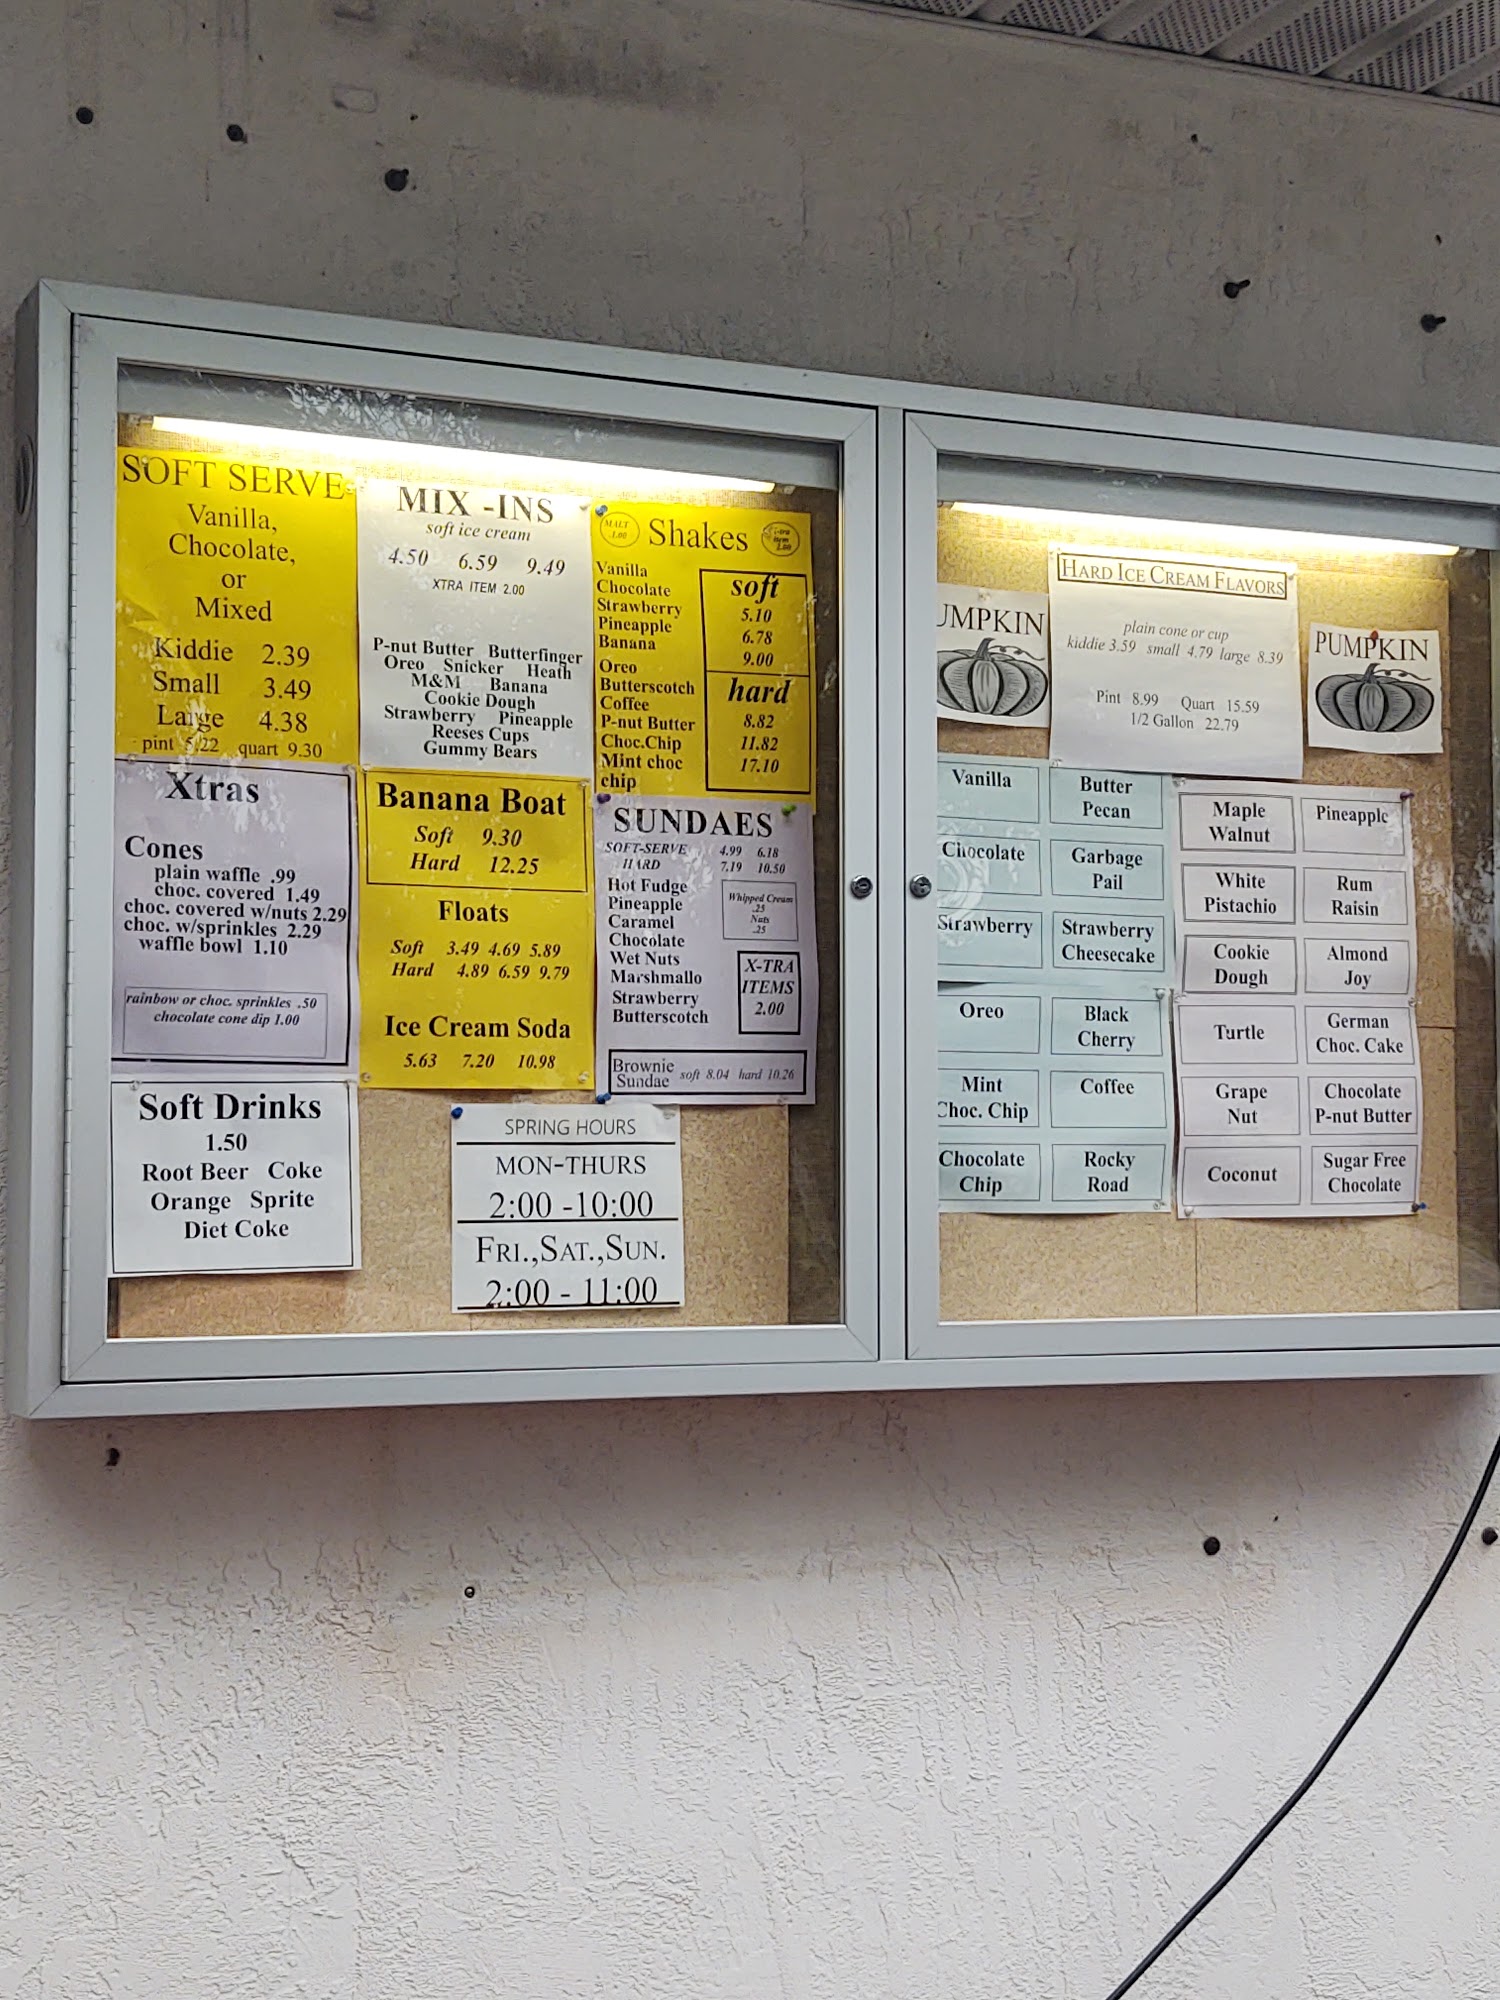 SOFT SERVE
Vanilla,
Chocolate,
or
Mixed
Kiddie 2.39
Small 3.49
Large 4.38
pint 5.22 quart 9.30
MIX -INS
soft ice cream
4.50 6.59 9.49
XTRA ITEM 2.00
P-nut Butter Butterfinger
Oreo Snicker Heath
M&M Banana
Cookie Dough
Strawberry Pineapple
Reeses Cups
Gummy Bears
MALT
1.00
Shakes
item
Vanilla
Chocolate
Strawberry
Pineapple
Banana
Oreo
Butterscotch
Coffee
P-nut Butter
Choc.Chip
Mint choc
chip
soft
5.10
6.78
9.00
hard
8.82
11.82
17.10
Xtras
Cones
plain waffle .99
choc. covered 1.49
choc. covered w/nuts 2.29
choc. w/sprinkles 2.29
waffle bowl 1.10
rainbow or choc. sprinkles .50
chocolate cone dip 1.00
Banana Boat
Soft 9.30
Hard 12.25
Floats
Soft 3.49 4.69 5.89
Hard 4.89 6.59 9.79
Ice Cream Soda
5.63 7.20 10.98
SUNDAES
SOFT-SERVE 4.99 6.18
HARD 7.19 10.50
Hot Fudge
Pineapple
Caramel
Chocolate
Wet Nuts
Marshmallo
Strawberry
Butterscotch
Whipped Cream
.25
Nuts
.25
X-TRA
ITEMS
2.00
Brownie
Sundae soft 8.04 hard 10.26
Soft Drinks
1.50
Root Beer Coke
Orange Sprite
Diet Coke
SPRING HOURS
MON-THURS
2:00 -10:00
FRI.,SAT.,SUN.
2:00 - 11:00
UMPKIN
HARD ICE CREAM FLAVORS
plain cone or cup
kiddie 3.59 small 4.79 large 8.39
Pint 8.99 Quart 15.59
1/2 Gallon 22.79
PUMPKIN
Vanilla
Butter
Pecan
Chocolate
Garbage
Pail
Strawberry
Strawberry
Cheesecake
Oreo
Black
Cherry
Mint
Choc. Chip
Coffee
Chocolate
Chip
Rocky
Road
Maple
Walnut
Pineapple
White
Pistachio
Rum
Raisin
Cookie
Dough
Almond
Joy
Turtle
German
Choc. Cake
Grape
Nut
Chocolate
P-nut Butter
Coconut
Sugar Free
Chocolate